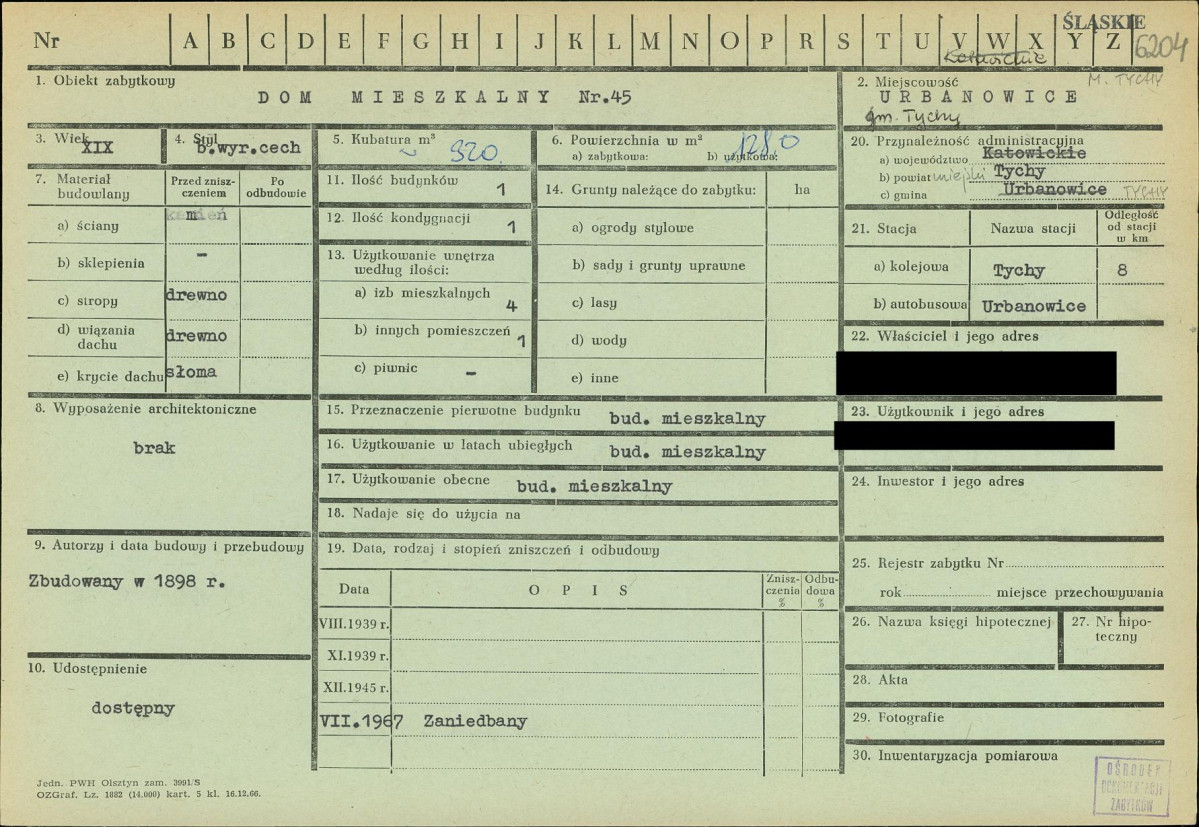 Nr A B C D E F G H I J K L M N O P R S T U V W X Y Z
ŚLĄSKIE
Katowickie
6204
1. Obiekt zabytkowy
DOM MIESZKALNY Nr.45
2. Miejscowość M. TYCHY
URBANOWICE
gm. Tychy
3. Wiek
XIX
4. Styl
b.wyr.cech
5. Kubatura m³
~ 320.
6. Powierzchnia w m²
a) zabytkowa: b) użytkowa:
128,0
20. Przynależność administracyjna
a) województwo Katowickie
b) powiat miejski Tychy
c) gmina Urbanowice TYCHY
7. Materiał budowlany
Przed zniszczeniem
Po odbudowie
a) ściany
kamień
m
b) sklepienia -
c) stropy drewno
d) wiązania dachu drewno
e) krycie dachu słoma
11. Ilość budynków 1
12. Ilość kondygnacji 1
13. Użytkowanie wnętrza
według ilości:
a) izb mieszkalnych 4
b) innych pomieszczeń 1
c) piwnic -
14. Grunty należące do zabytku: ha
a) ogrody stylowe
b) sady i grunty uprawne
c) lasy
d) wody
e) inne
21. Stacja
Nazwa stacji
Odległość od stacji w km
a) kolejowa Tychy 8
b) autobusowa Urbanowice
22. Właściciel i jego adres
23. Użytkownik i jego adres
8. Wyposażenie architektoniczne
brak
15. Przeznaczenie pierwotne budynku bud. mieszkalny
16. Użytkowanie w latach ubiegłych bud. mieszkalny
17. Użytkowanie obecne bud. mieszkalny
18. Nadaje się do użycia na
24. Inwestor i jego adres
9. Autorzy i data budowy i przebudowy
Zbudowany w 1898 r.
19. Data, rodzaj i stopień zniszczeń i odbudowy
Data OPIS
Zniszczenia %
Odbudowa %
VIII.1939 r.
XI.1939 r.
XII.1945 r.
VII.1967 Zaniedbany
10. Udostępnienie
dostępny
25. Rejestr zabytku Nr
rok miejsce przechowywania
26. Nazwa księgi hipotecznej
27. Nr hipo-
teczny
28. Akta
29. Fotografie
30. Inwentaryzacja pomiarowa
OŚRODEK
DOKUMENTACJI
ZABYTKÓW
Jedn. PWH Olsztyn zam. 3991/S
OZGraf. Lz. 1882 (14.000) kart. 5 kl. 16.12.66.